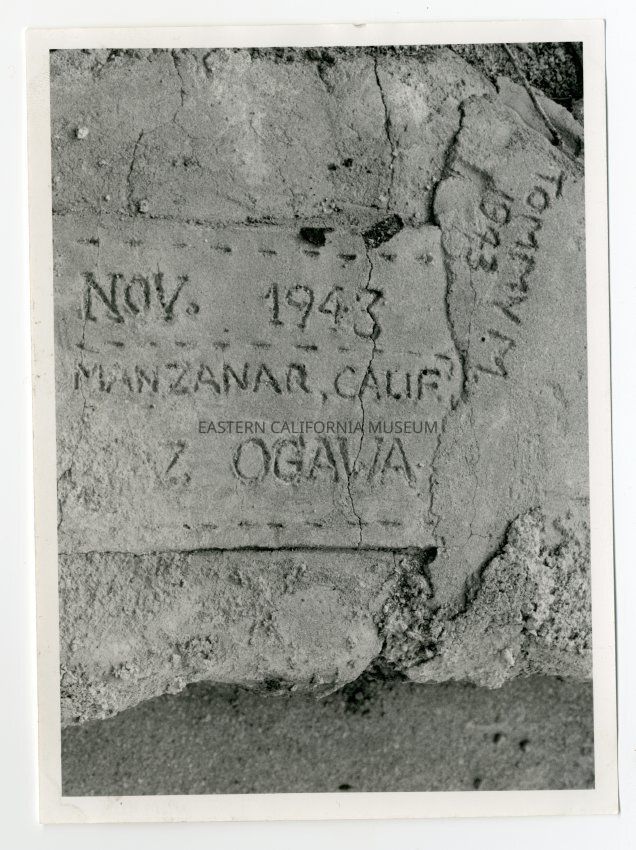 NOV. 1943
MANZANAR, CALIF.
EASTERN CALIFORNIA MUSEUM
Z. OGAWA
TOMMY M.
1943